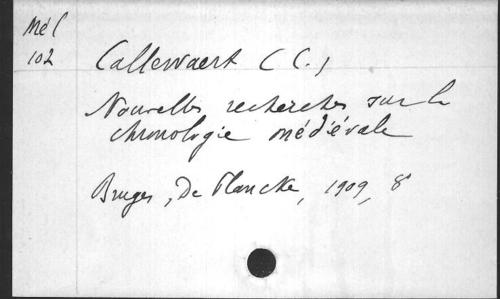 Mél
102
Callewaert (C.)
Nouvelles recherches sur la
chronologie médiévale
Bruges, De Plancke, 1909, 8°